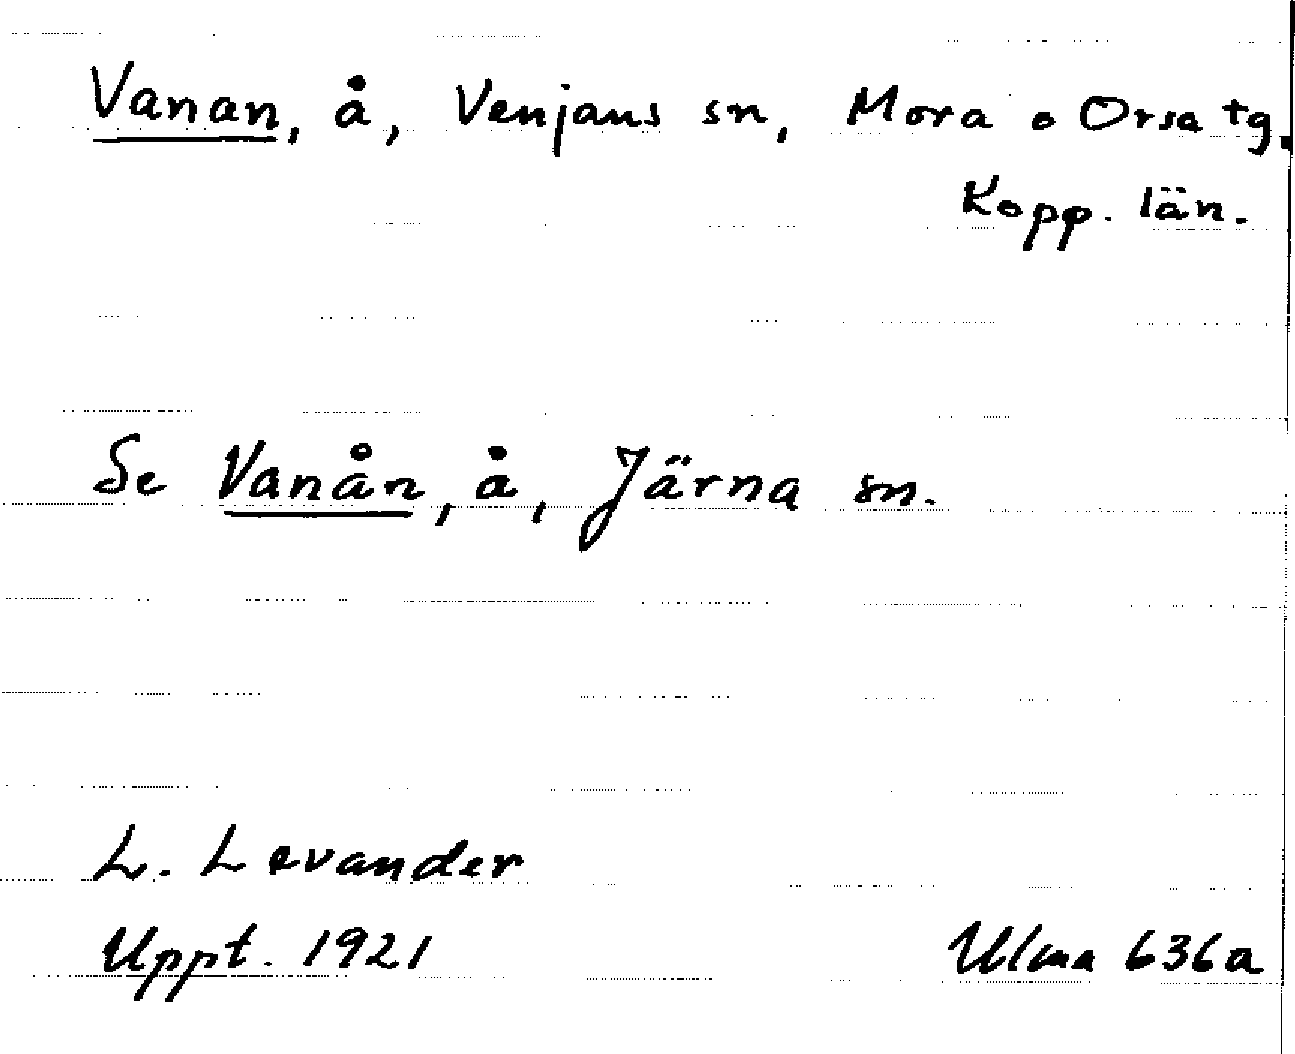 Vanan, å, Venjans sn, Mora o Orsa tg.
Kopp. län.
Se Vanån, å, Järna sn.
L. Levander
Uppt. 1921 Ulma 636a